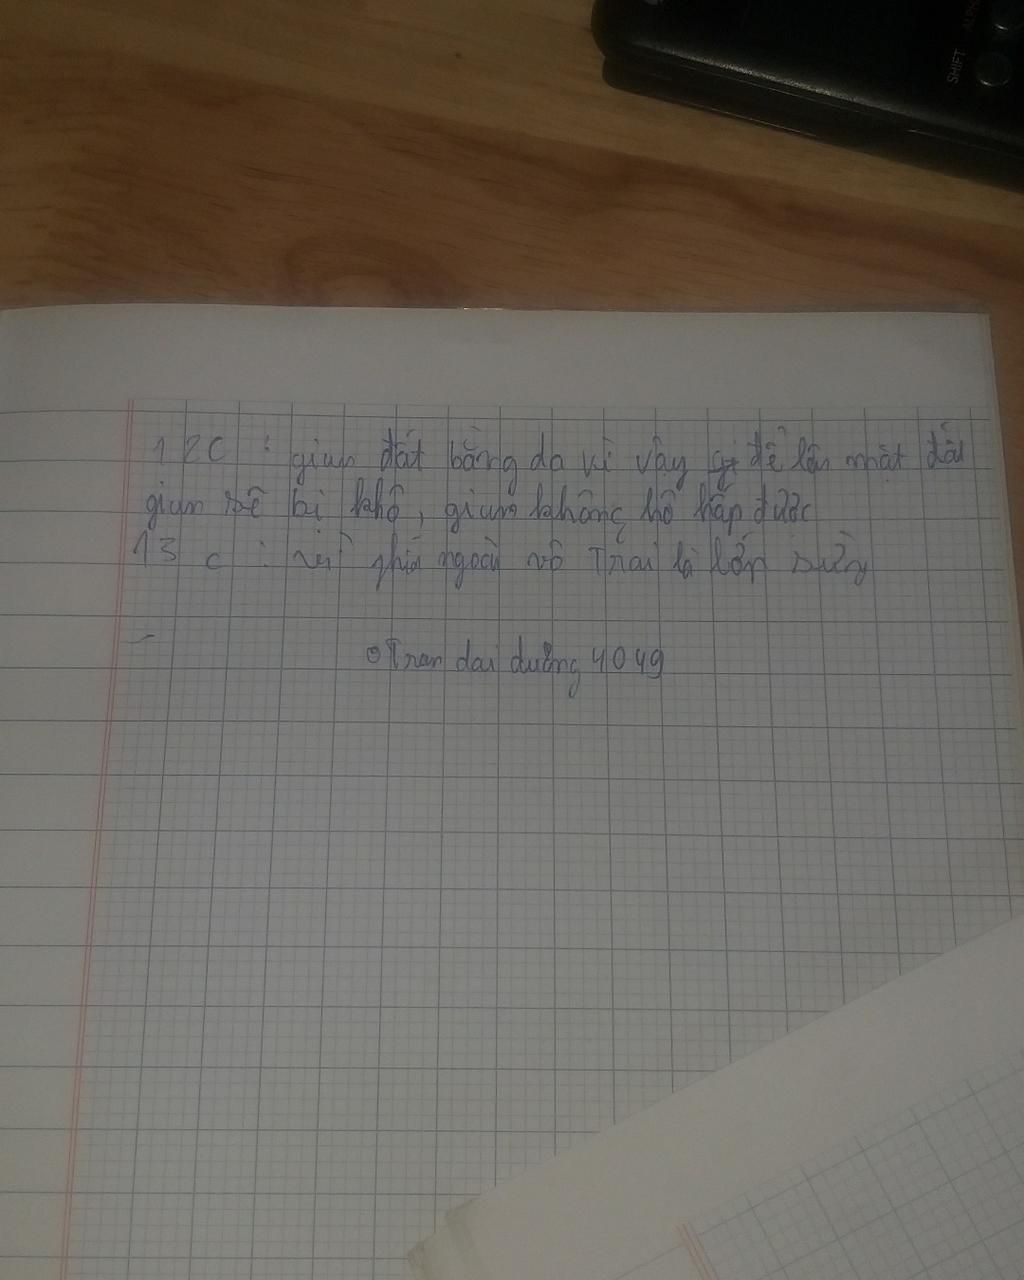 SHIFT ALPH
12C : giun đất bằng da vì vậy để lên mặt đất
giun sẽ bị khô, giun không hô hấp được
13 c : vì phía ngoài vỏ Trai là lớp sừng
Tran dai dương 4049